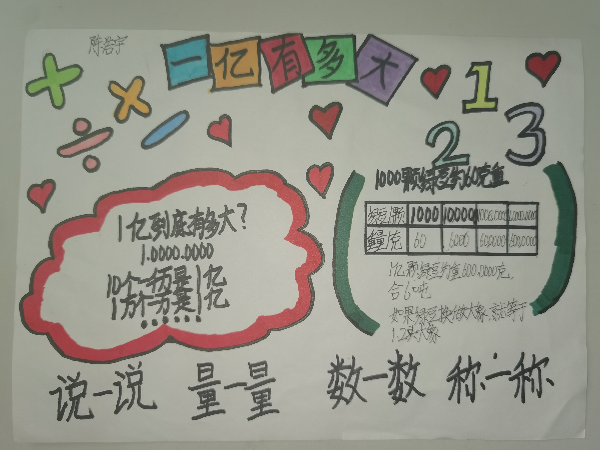 陈浩宇
一亿有多大
1
2 3
1亿到底有多大?
1.0000.0000
10个一千万是1亿
1万个一万是1亿
......
1000颗绿豆约60克重
绿豆/颗 1000 10000
重量/克 60
1亿颗绿豆约重600.0000克,
合6吨
如果绿豆换成大象,就等于
1.2头大象
说一说 量一量 数一数 称一称